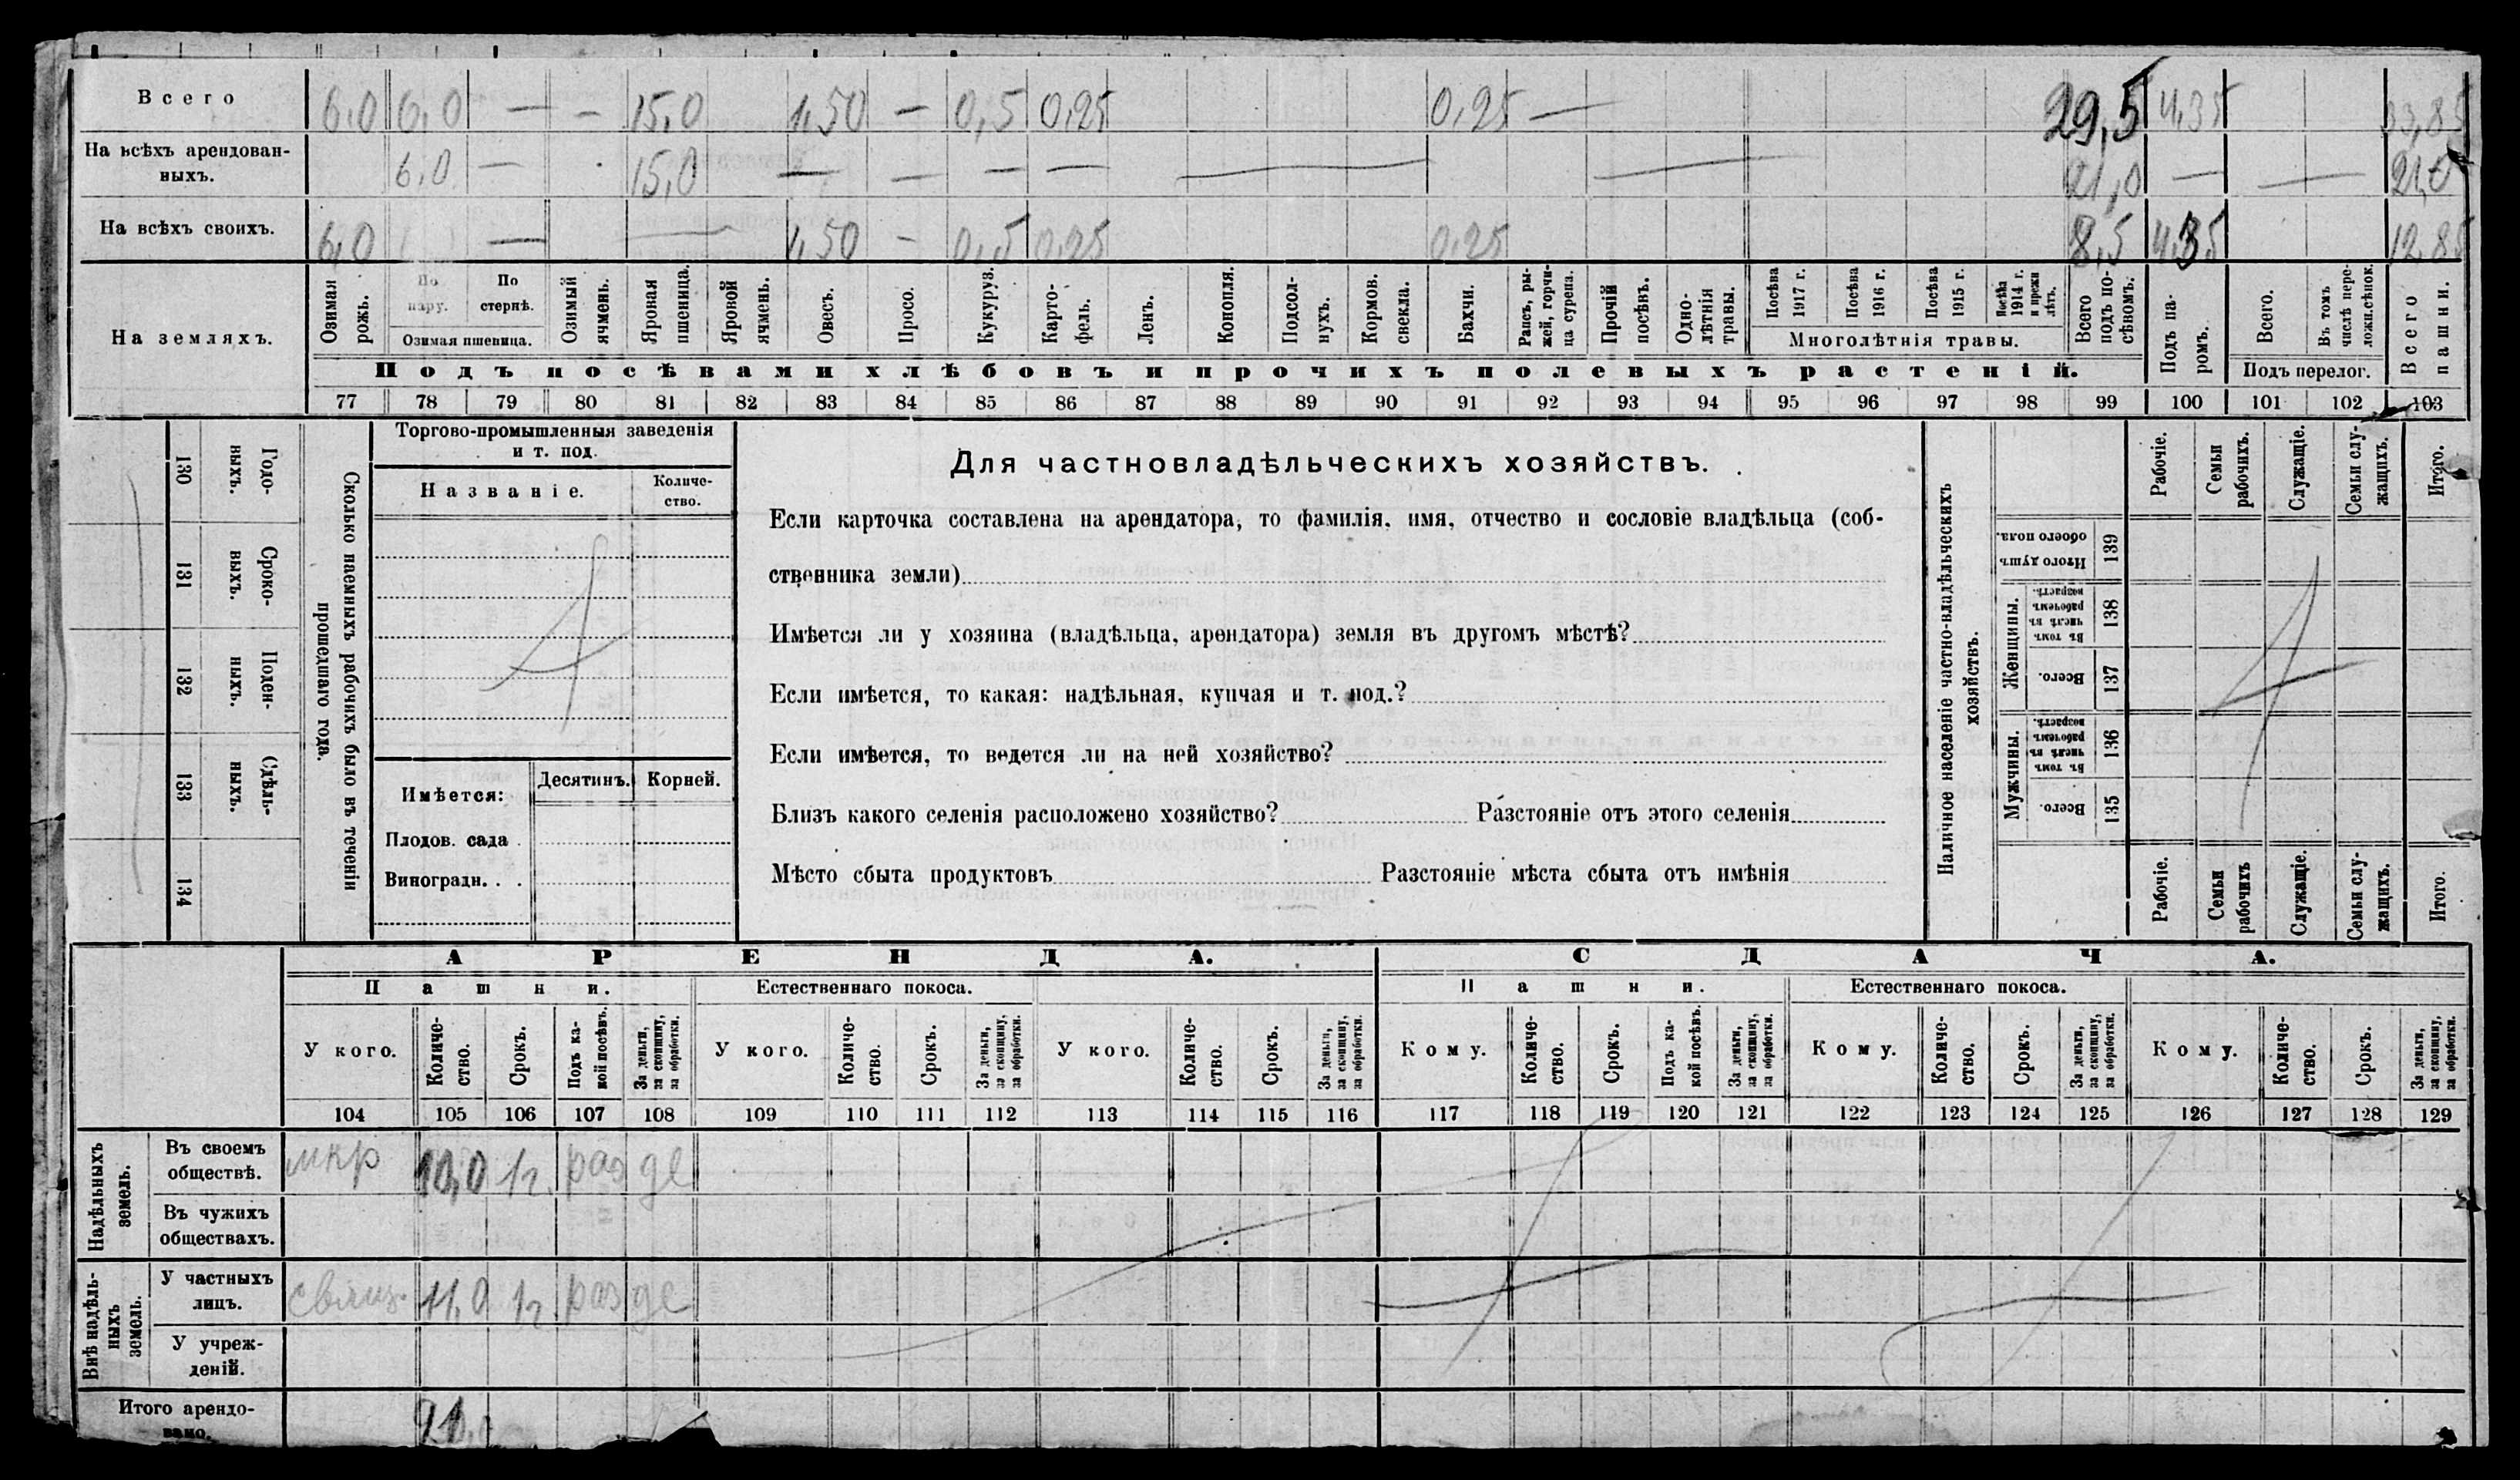 Всего 6,0 6,0 — — 15,0 1,50 — 0,5 0,25 0,25 — 29,5 4,35 33,85
На всѣхъ арендован-
ныхъ. 6,0 — 15,0 — — — — — — 21,0 — — 21,0
На всѣхъ своихъ. 6,0 — — 1,50 — 0,5 0,25 0,25 8,5 4,35 12,85
На земляхъ.
Озимая рожь.
По пару.
По стернѣ.
Озимая пшеница.
Озимый ячмень.
Яровая пшеница.
Яровой ячмень.
Овесъ.
Просо.
Кукуруз.
Карто-
фель.
Ленъ.
Конопля.
Подсол-
нухъ.
Кормов. свекла.
Бахчи.
Рапсъ, ры-
жей, горчи-
ца сурепа.
Прочій посѣвъ.
Одно-
лѣтнія травы.
Посѣва 1917 г.
Посѣва 1916 г.
Посѣва 1915 г.
Посѣва 1914 г. и прежн лѣтъ.
Многолѣтнія травы.
Всего подъ по-
сѣвомъ.
Подъ па-
ромъ.
Всего.
Въ томъ числѣ пере-
ложн.сѣнок.
Подъ перелог.
Всего пашни.
Подъ посѣвами хлѣбовъ и прочихъ полевыхъ растеній.
77 78 79 80 81 82 83 84 85 86 87 88 89 90 91 92 93 94 95 96 97 98 99 100 101 102 103
130 Годо-
ныхъ.
131 Сроко-
выхъ.
132 Поден-
ныхъ.
133 Сдѣль-
ныхъ.
134
Сколько наемныхъ рабочихъ было въ теченіи
прошедшаго года.
Торгово-промышленныя заведенія
и т. под.
Названіе.
Количе-
ство.
Имѣется:
Десятинъ.
Корней.
Плодов. сада .
Виноградн. . .
Для частновладѣльческихъ хозяйствъ.
Если карточка составлена на арендатора, то фамилія, имя, отчество и сословіе владѣльца (соб-
ственника земли)
Имѣется ли у хозяина (владѣльца, арендатора) земля въ другомъ мѣстѣ?
Если имѣется, то какая: надѣльная, купчая и т. под.?
Если имѣется, то ведется ли на ней хозяйство?
Близъ какого селенія расположено хозяйство? Разстояніе отъ этого селенія
Мѣсто сбыта продуктовъ Разстояніе мѣста сбыта отъ имѣнія
Наличное населеніе частно-владѣльческихъ
хозяйствъ.
Рабочіе.
Семьи рабочихъ.
Служащіе.
Семьи слу-
жащихъ.
Итого.
Итого душъ обоего пола. 139
Женщины.
Въ томъ числѣ въ рабочемъ возрастѣ. 138
Всего. 137
Мужчины.
Въ томъ числѣ въ рабочемъ возрастѣ. 136
Всего. 135
Рабочіе.
Семьи рабочихъ
Служащіе.
Семьи слу-
жащихъ.
Итого.
АРЕНДА.
СДАЧА.
Пашни.
Естественнаго покоса.
Пашни.
Естественнаго покоса.
У кого.
Количе-
ство.
Срокъ.
Подъ ка-
кой посѣвъ.
За деньги, за скопщину, за обработки.
У кого.
Количе-
ство.
Срокъ.
За деньги, за скопщину, за обработки.
У кого.
Количе-
ство.
Срокъ.
За деньги, за скопщину, за обработки.
Кому.
Количе-
ство.
Срокъ.
Подъ ка-
кой посѣвъ.
За деньги, за скопщину, за обработки.
Кому.
Количе-
ство.
Срокъ.
За деньги, за скопщину, за обработки.
Кому.
Количе-
ство.
Срокъ.
За деньги, за скопщину, за обработки.
104 105 106 107 108 109 110 111 112 113 114 115 116 117 118 119 120 121 122 123 124 125 126 127 128 129
Надѣльныхъ земель.
Въ своемъ
обществѣ. мкр 10,0 1г. раз де
Въ чужихъ
обществахъ.
Внѣ надѣль-
ныхъ земель.
У частныхъ
лицъ. свящ. 11,0 1г. раз де
У учреж-
деній.
Итого арендо-
вано. 21,0